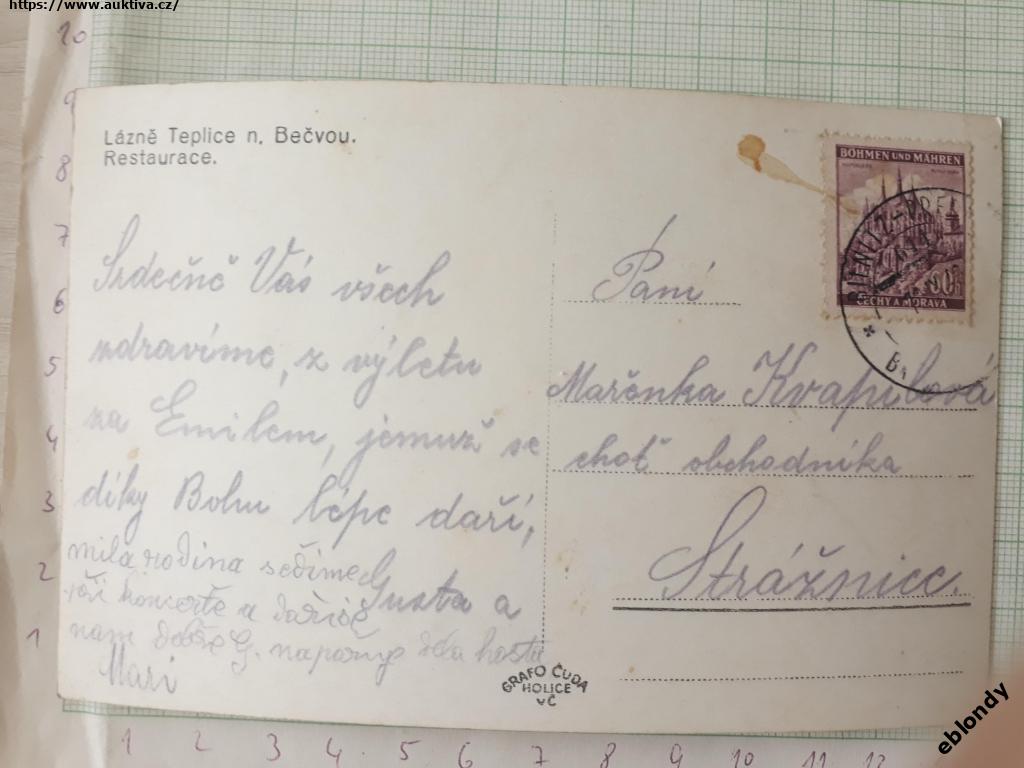 https://www.auktiva.cz/
10
9
8
7
6
5
4
3
2
1
Lázně Teplice n. Bečvou.
Restaurace.
Srdečně Vás všech
zdravíme, z výletu
za Emilem, jemuž se
díky Bohu lépe daří,
Gusta a
milá rodina sedíme
při koncertě a daří se
nám dobře G.
Mari
BÖHMEN UND MÄHREN
ČECHY A MORAVA
Paní
Mařenka Kvapilová
choť obchodníka
Strážnice.
GRAFO ČUDA
HOLICE
VČ
1 2 3 4 5 6 7 8 9 10 11 12
eblondy